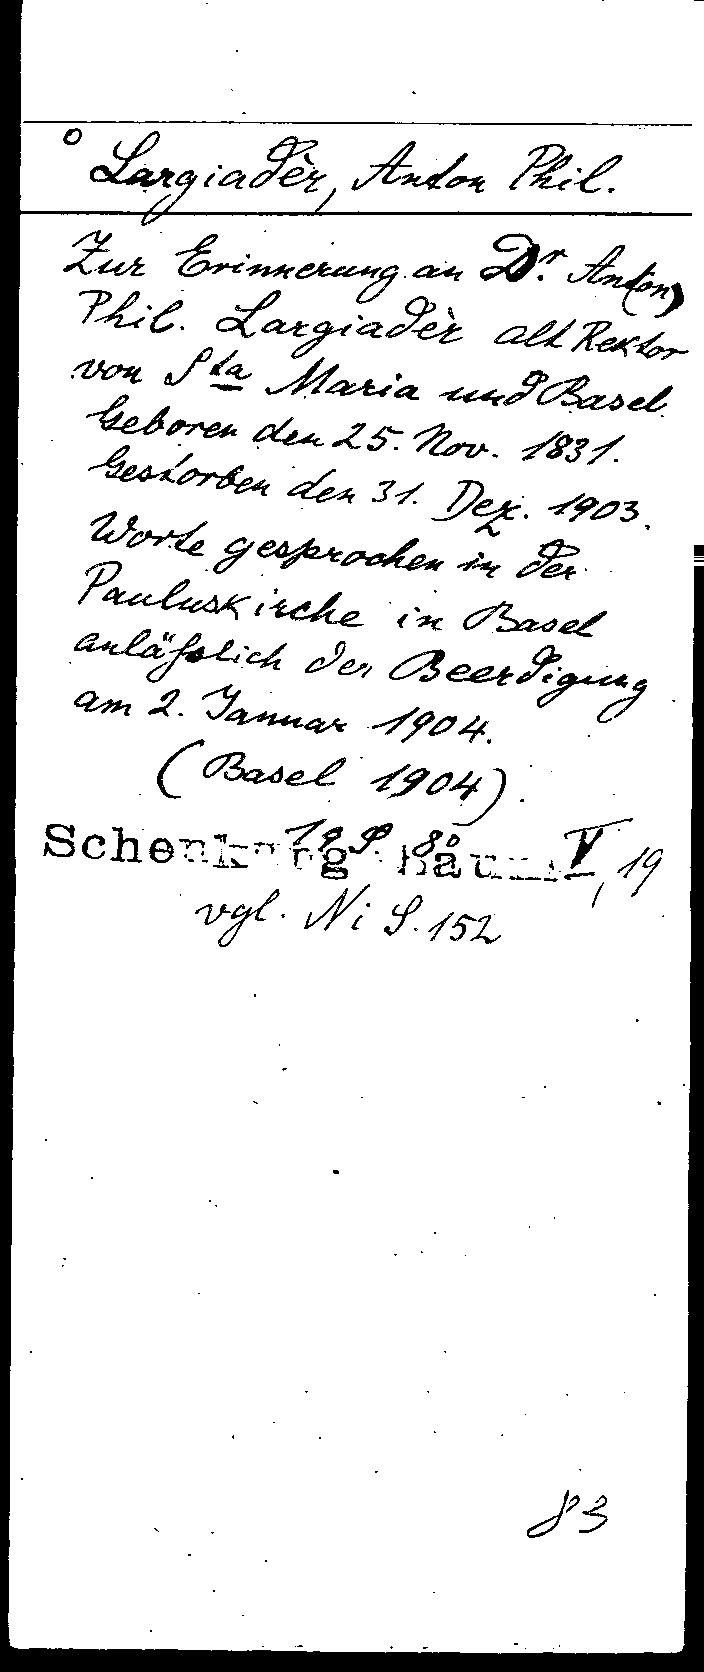 o
Largiadèr, Anton Phil.
Zur Erinnerung an Dr. Anton
Phil. Largiadèr alt Rektor
von Sta Maria und Basel
Geboren den 25. Nov. 1831.
Gestorben den 31. Dez. 1903.
Worte gesprochen in der
Pauluskirche in Basel
anläßlich der Beerdigung
am 2. Januar 1904.
(Basel 1904).
19 S. 8°
Schenkung V, 19
vgl. Ni S. 152
83